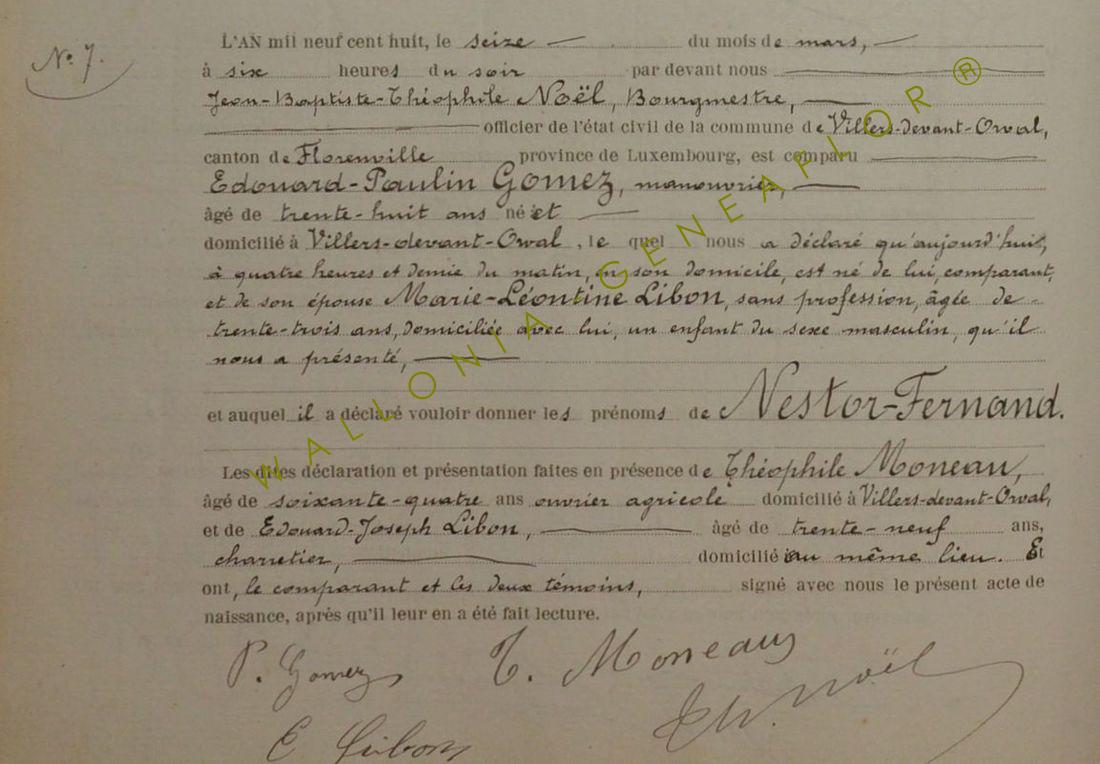 N° 7.
L'AN mil neuf cent huit, le seize du mois de mars,
à six heures du soir par devant nous
Jean-Baptiste-Théophile Noël, Bourgmestre,
officier de l'état civil de la commune de Villers-devant-Orval,
canton de Florenville province de Luxembourg, est comparu
Edouard-Paulin Gomez, manouvrier,
âgé de trente-huit ans né et
domicilié à Villers-devant-Orval, le quel nous a déclaré qu'aujourd'hui,
à quatre heures et demie du matin, en son domicile, est né de lui, comparant,
et de son épouse Marie-Léontine Libon, sans profession, âgée de
trente-trois ans, domiciliée avec lui, un enfant du sexe masculin, qu'il
nous a présenté,
et auquel il a déclaré vouloir donner les prénoms de Nestor-Fernand.
Les dites déclaration et présentation faites en présence de Théophile Moneau,
âgé de soixante-quatre ans ouvrier agricole domicilié à Villers-devant-Orval,
et de Edouard-Joseph Libon, âgé de trente-neuf ans,
charretier, domicilié au même lieu. Et
ont, le comparant et les deux témoins, signé avec nous le présent acte de
naissance, après qu'il leur en a été fait lecture.
P. Gomez T. Moneaux
E Libon Th. Noël
WALLONIA GENEAPLOR ®